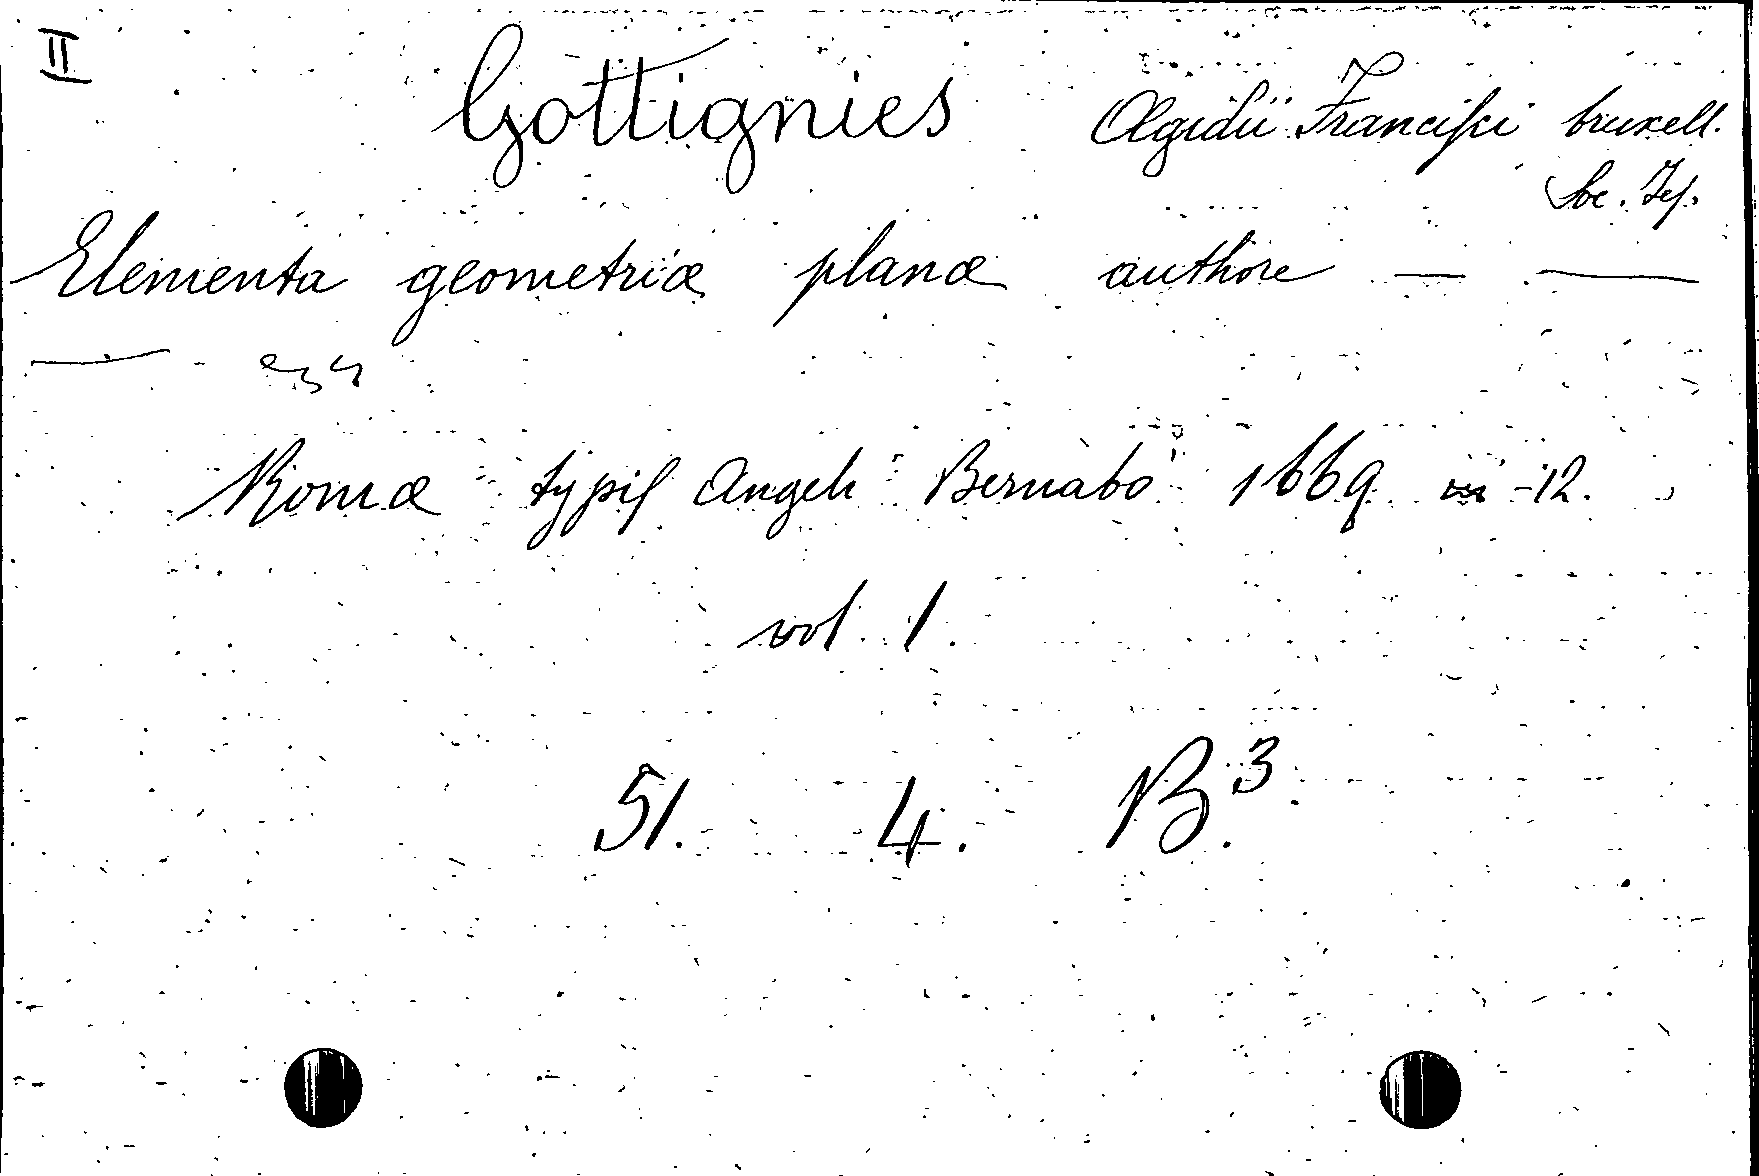 II Gottignies Ægidii Franciſci bruxell.
Soc. Jeſ.
Elementa geometriæ planæ authore — —
—
Romæ typiſ Angeli Bernabò 1669 in-12.
vol. 1.
51. 4. B³.